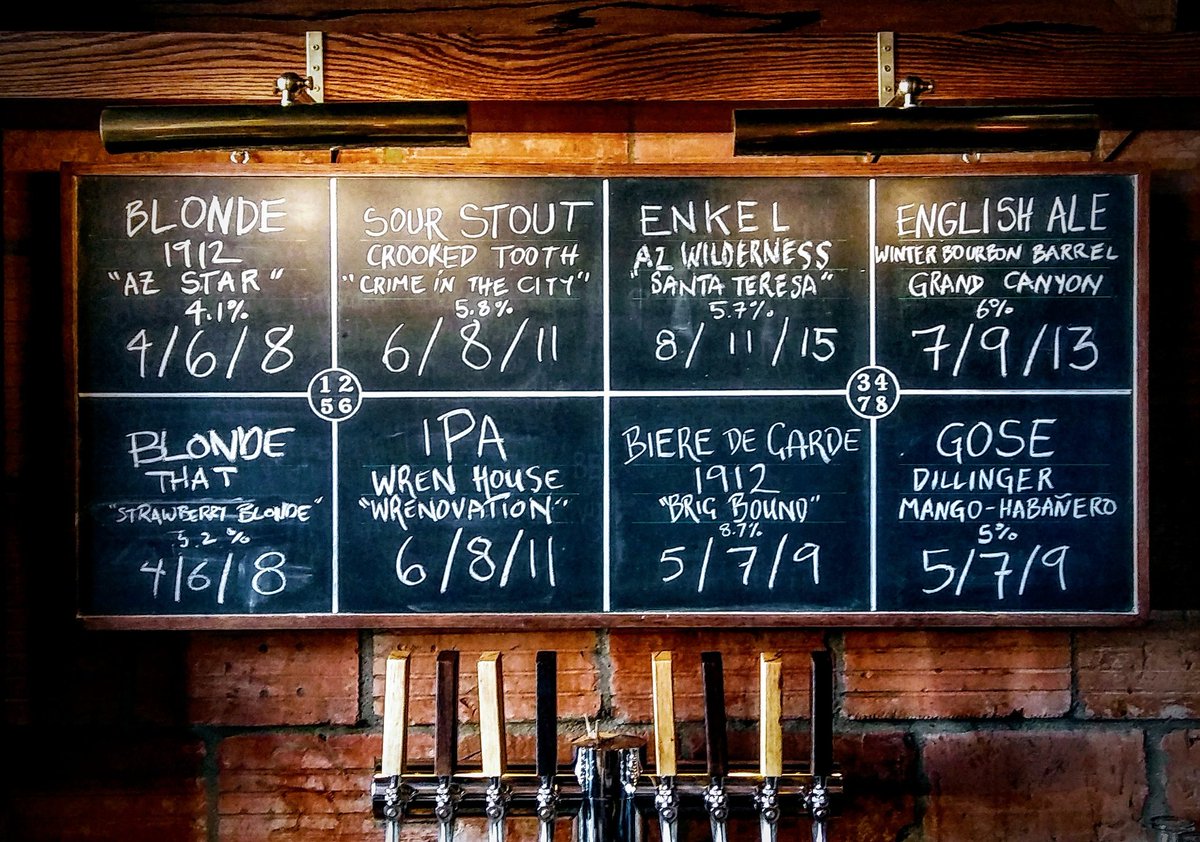 BLONDE
1912
"AZ STAR"
4.1%
4/6/8
SOUR STOUT
CROOKED TOOTH
"CRIME IN THE CITY"
5.8%
6/8/11
ENKEL
AZ WILDERNESS
"SANTA TERESA"
5.7%
8/11/15
ENGLISH ALE
WINTER BOURBON BARREL
GRAND CANYON
6%
7/9/13
1 2
5 6
3 4
7 8
BLONDE
THAT
"STRAWBERRY BLONDE"
5.2%
4/6/8
IPA
WREN HOUSE
"WRENOVATION"
6/8/11
BIERE DE GARDE
1912
"BRIG BOUND"
8.7%
5/7/9
GOSE
DILLINGER
MANGO-HABAÑERO
5%
5/7/9